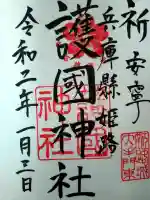 祈 安寧
兵庫縣姫路
護國神社
令和二年一月三日